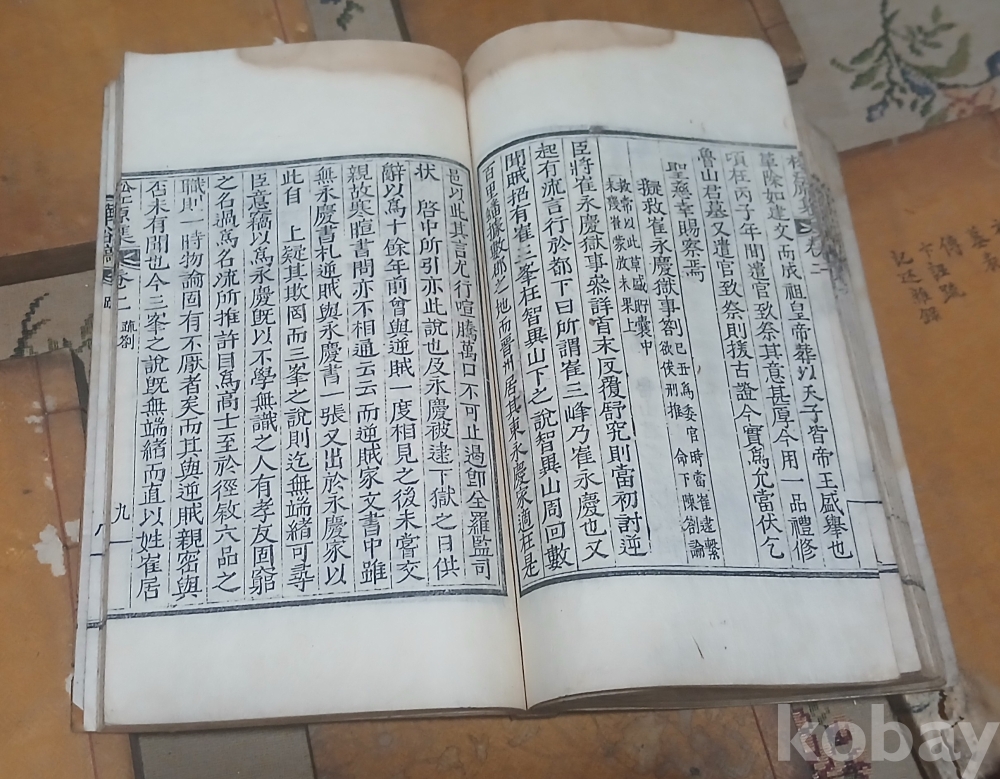 松江原集 卷二
革除如建文而成祖皇帝葬以天子皆帝王盛擧也
頃在丙子年間遣官致祭其意甚厚今用一品禮修
魯山君墓又遣官致祭則援古證今實爲允當伏乞
聖慈幸賜察焉
擬救崔永慶獄事劄 己丑爲委官時當崔逮繫
欲俟刑推 命下陳劄論
救常以此草藏貯囊中
未幾崔蒙放未果上
臣將崔永慶獄事參詳首末反覆舒究則當初討逆
起有流言行於都下曰所謂崔三峰乃崔永慶也又
聞賊招有崔三峯在智異山下之說智異山周回數
百里蟠據數郡之地而晋州居其東永慶家適在是
邑以此其言尤行喧騰萬口不可止遏卽全羅監司
状 啓中所引亦此說也及永慶被逮下獄之日供
辭以爲十餘年前曾與逆賊一度相見之後未嘗交
親故寒暄書問亦不相通云云而逆賊家文書中雖
無永慶書札逆賊與永慶書一張又出於永慶家以
此自 上疑其欺罔而三峯之說則迄無端緖可尋
臣意竊以爲永慶旣以不學無識之人有孝友固窮
之名過爲名流所推許目爲高士至於徑敘六品之
職則一時物論固有不厭者矣而其與逆賊親密與
否未有聞也今三峯之說旣無端緖而直以姓崔居
松江原集 卷二 疏劄 九
記述雜錄
kobay